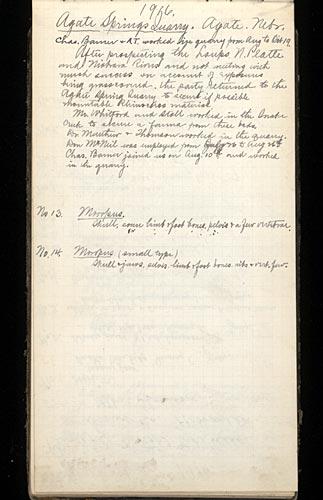 1916.
Agate Springs Quarry. Agate. Nebr.
Chas. Barner & A.T. worked quarry from Aug to Oct 19
After prospecting the Loups N. Platte
and Niobrara Rivers and not meeting with
much success on account of exposures
being grassed, the party returned to the
Agate Spring Quarry to secure if possible
mountable Rhinoceros material.
Mr. Whitford and Stoll worked in the Snake
Creek to secure a fauna from these beds.
Dr. Matthew & Thomson worked in the quarry.
Don McNeil was employed from July 26 to Aug 26th
Chas. Barner joined us on Aug. 10th and worked
in the quarry.
No 13. Moropus.
Skull, some limb & foot bones, pelvis & a few vertebrae.
No. 14. Moropus (small type)
Skull & jaws, pelvis, limb & foot bones, ribs & vert. few.